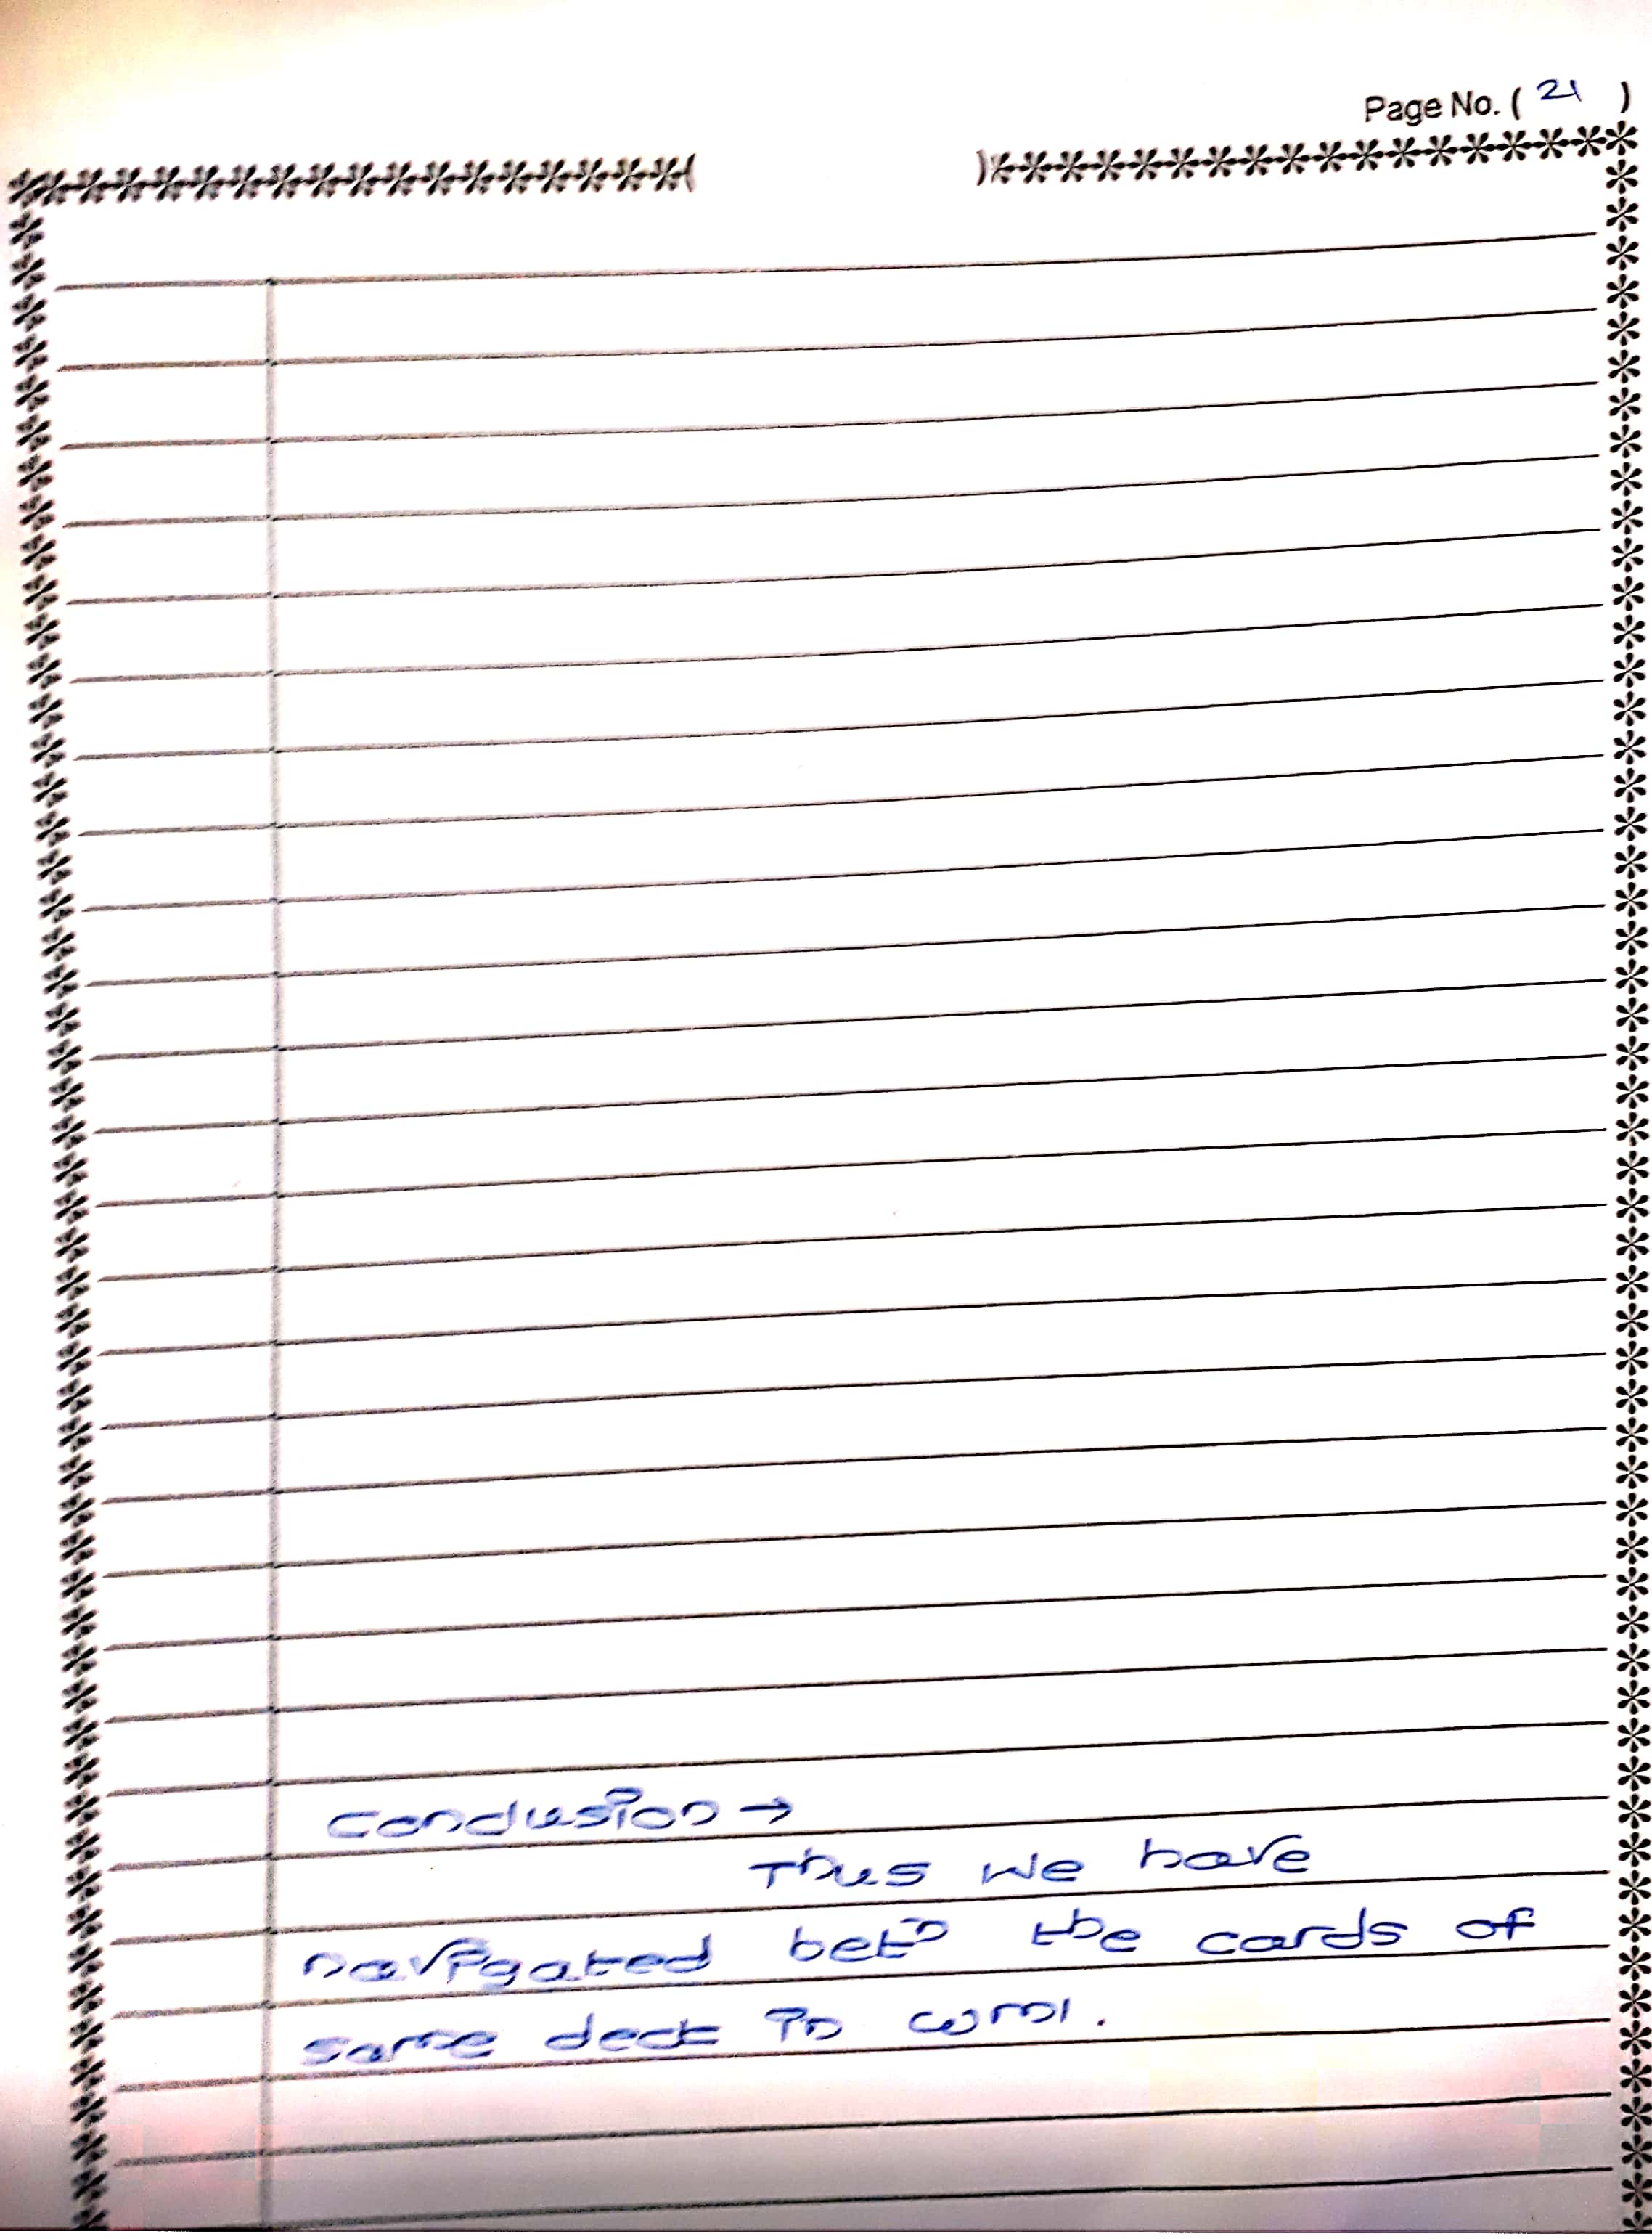 Page No. ( 21 )
Conclusion →
Thus we have
navigated betn the cards of
same deck in wml.